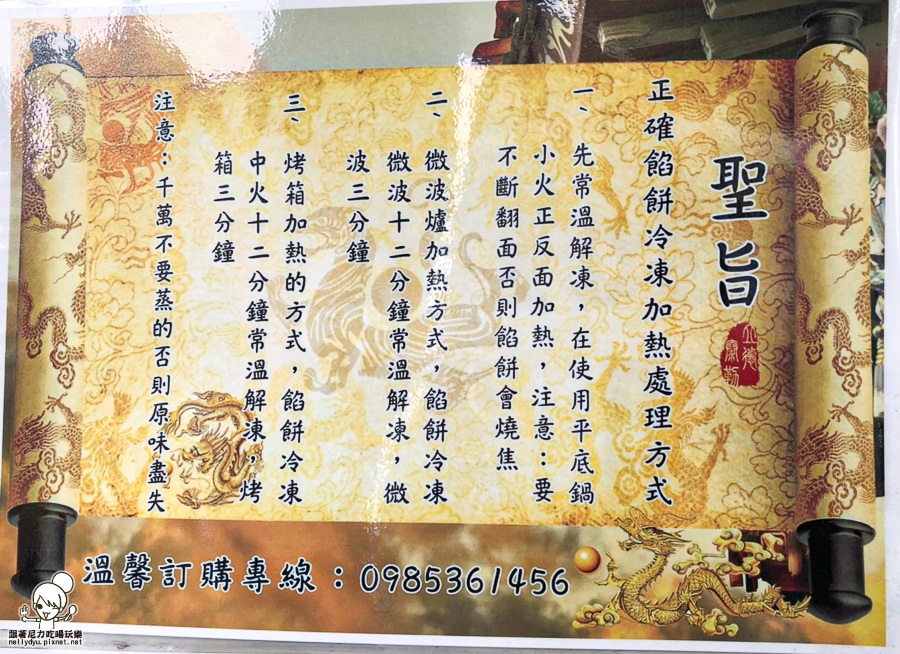 聖旨
正確餡餅冷凍加熱處理方式
一、先常溫解凍，在使用平底鍋
小火正反面加熱，注意：要
不斷翻面否則餡餅會燒焦
二、微波爐加熱方式，餡餅冷凍
微波十二分鐘常溫解凍，微
波三分鐘
三、烤箱加熱的方式，餡餅冷凍
中火十二分鐘常溫解凍，烤
箱三分鐘
注意：千萬不要蒸的否則原味盡失
溫馨訂購專線：0985361456
跟著尼力吃喝玩樂
nellydyu.pixnet.net